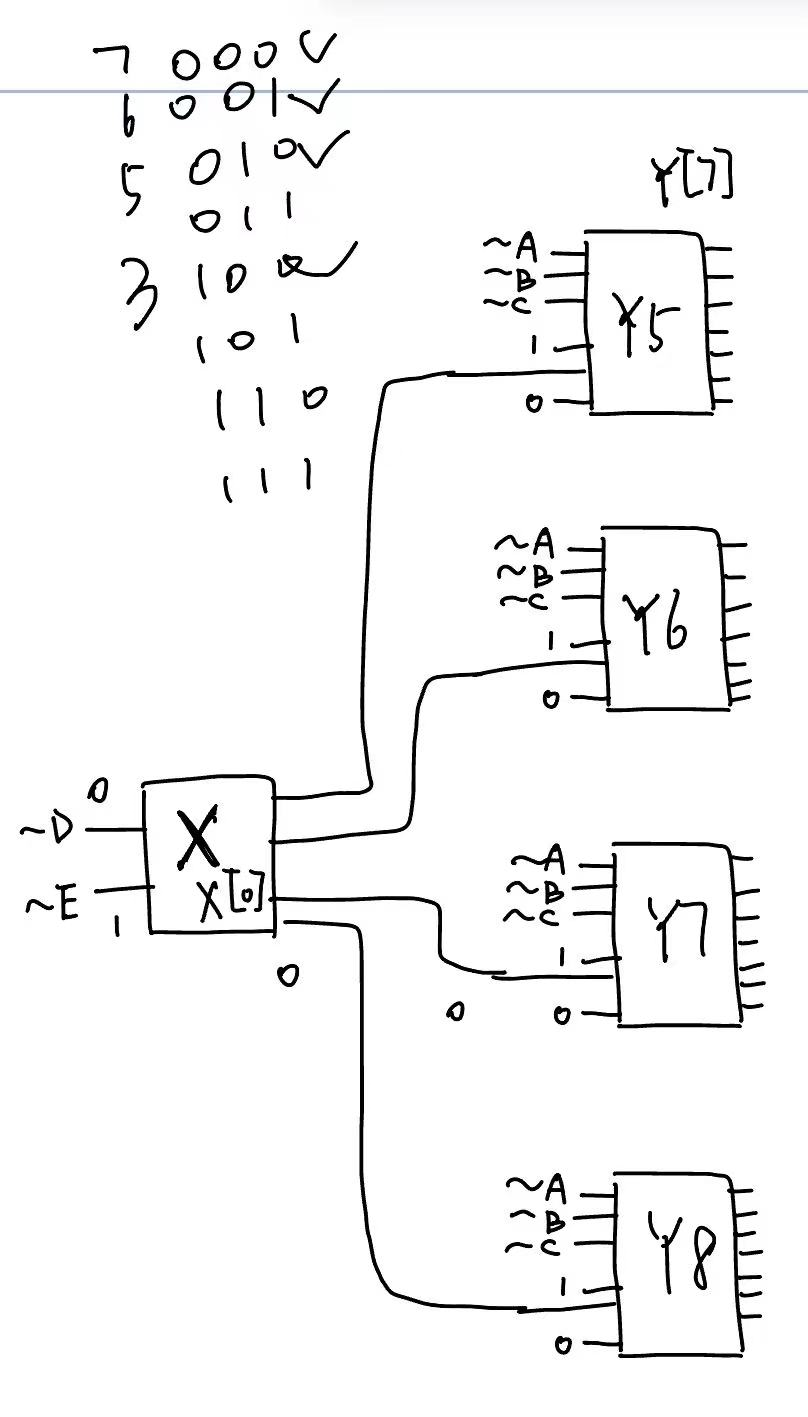 7 000✓
6 001✓
5 010✓
011
3 100✓
101
110
111
Y[7]
~A
~B
~C
1
0
Y5
~A
~B
~C
1
0
Y6
0
~D
~E
1
X
X[0]
0
~A
~B
~C
1
0
0
Y7
~A
~B
~C
1
0
Y8